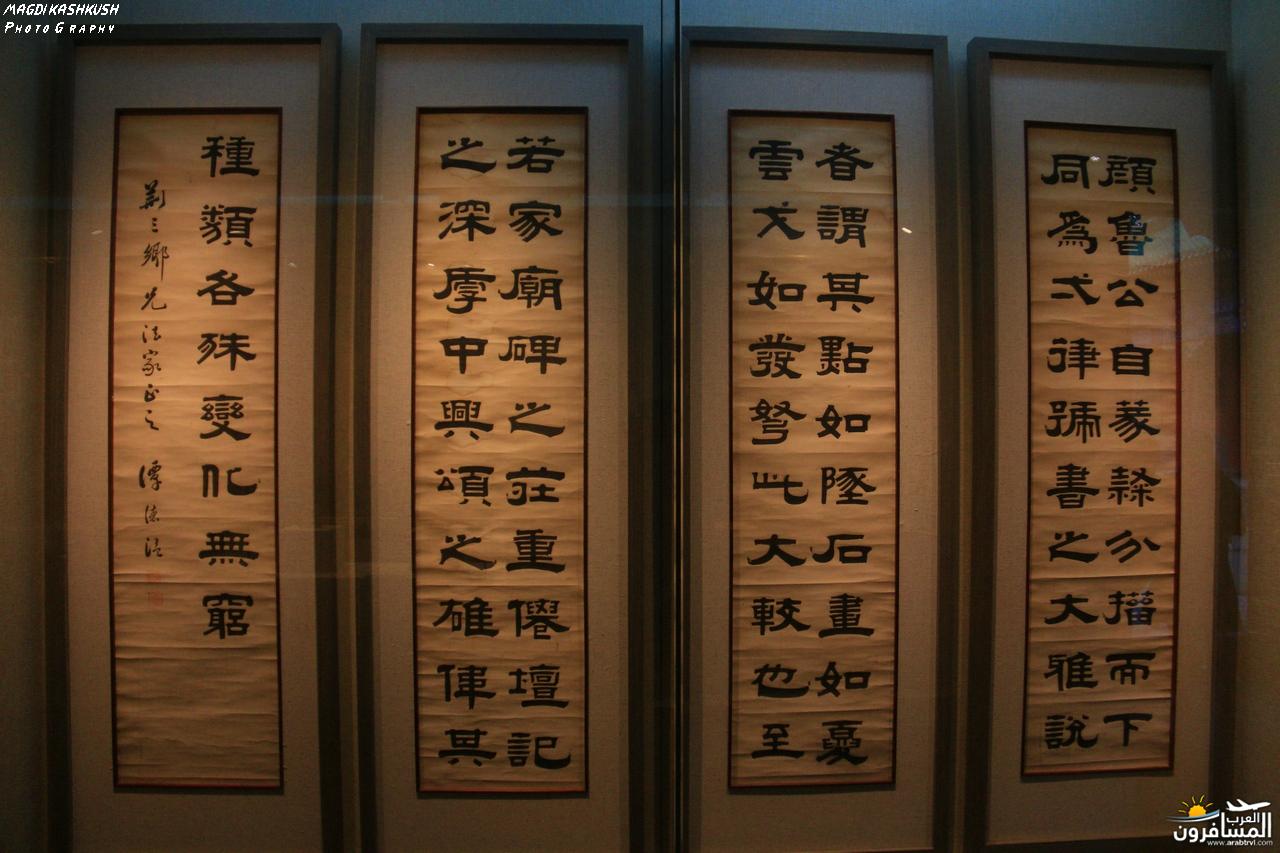 MAGDI KASHKUSH
PHOTOGRAPHY
顔魯公自篆隸分籀而下
同爲弌律號書之大雅說
者謂其點如墜石畫如夏
雲戈如發弩此大較也至
若家廟碑之莊重僊壇記
之深厚中興頌之雄偉其
種類各殊變化無窮
三鄉兄法家正之 譚
العرب
المسافرون
www.arabtrvl.com